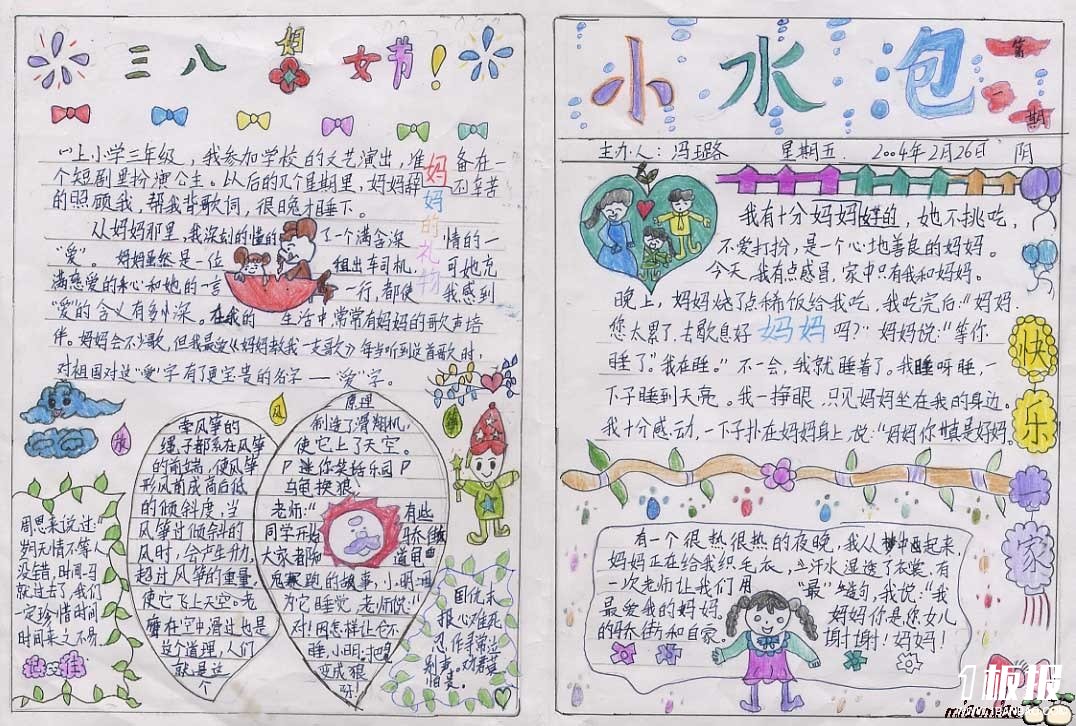 三八妇女节！
上小学三年级，我参加学校的文艺演出，准备在一
个短剧里扮演公主。以后的几个星期里，妈妈辞不辛苦
的照顾我，帮我背歌词，很晚才睡下。
妈妈的礼物
从妈妈那里，我深刻的懂的了一个满含深情的一
“爱”。妈妈虽然是一位租出车司机，可她充
满恋爱的和心和她的一言一行，都使我感到
“爱”的含义有多么深。在我的生活中，常常有妈妈的歌声培
伴。妈妈会不少歌，但我最爱《妈妈教我一支歌》每当听到这首歌时，
对祖国对这“爱”字有了更宝贵的名字——“爱”字。
放风筝
牵风筝的
绳子都系在风筝
的前端，使风筝
形风前成高后低
的倾斜度，当
风筝过倾斜的
风时，会产生升力，
超过风筝的重量，
使它飞上天空。老
鹰在空中滑过也是
这个道理，人们
就是这
个
原理
制造了滑翔机，
使它上了天空。
P 迷你笑话乐园 P
乌龟换狼
老师：“有些
同学开始骄傲
大家都知道龟
兔赛跑的故事，小明
为它睡觉，老师说：“
对！因怎样让它不
睡，小明：把它
变成狼
呀！
周恩来说过：“
时无情不等人
没错，时间一马
就过去了，我们
一定珍惜时间
时间来之不易
记住
小水泡
第一期
主办人：冯璐 星期五 2004年2月26日 阴
我有十分妈妈好的，她不挑吃，
不爱打扮，是一个心地善良的妈妈。
今天，我有点感冒，家中只有我和妈妈，
晚上，妈妈烧了点稀饭给我吃，我吃完后：“妈妈
您太累了，去歇息好妈妈吗？”妈妈说：“等你
睡了”我在睡。”不一会，我就睡着了。我睡呀睡，一
下子睡到天亮。我一挣眼，只见妈妈坐在我的身边。
我十分感动，一下子扑在妈妈身上，说：“妈妈你真是好妈妈。
快乐一家
有一个很热很热的夜晚，我从梦中西起来，
妈妈正在给我织毛衣，汗水湿透了衣裳。有
一次老师让我们用“最”造句，我说：“我
最爱我的妈妈，妈妈你是您女儿
的骄傲和自豪。谢谢！妈妈！
1板报
WWW.1BANBAO.COM